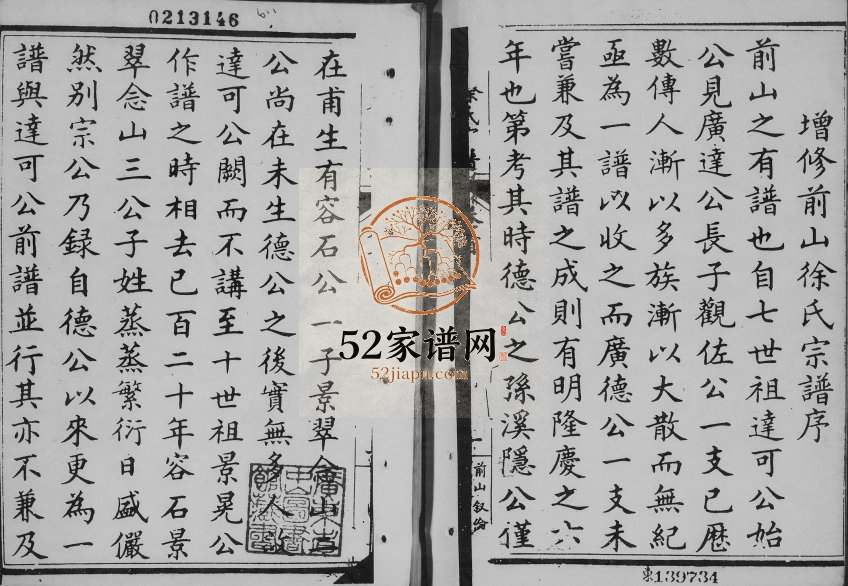 0213146
增修前山徐氏宗譜序
前山之有譜也自七世祖達可公始
公見廣達公長子觀佐公一支已歷
數傳人漸以多族漸以大散而無紀
亟為一譜以收之而廣德公一支未
嘗兼及其譜之成則有明隆慶之六
年也第考其時德公之孫溪隱公僅
前山叙倫
東139734
在甫生有容石公一子景翠
公尚在未生德公之後實無多人
達可公闕而不講至十世祖景晃公
作譜之時相去已百二十年容石景
翠念山三公子姓蒸蒸繁衍日盛儼
然別宗公乃錄自德公以來更為一
譜與達可公前譜並行其亦不兼及
52家谱网
52jiapu.com